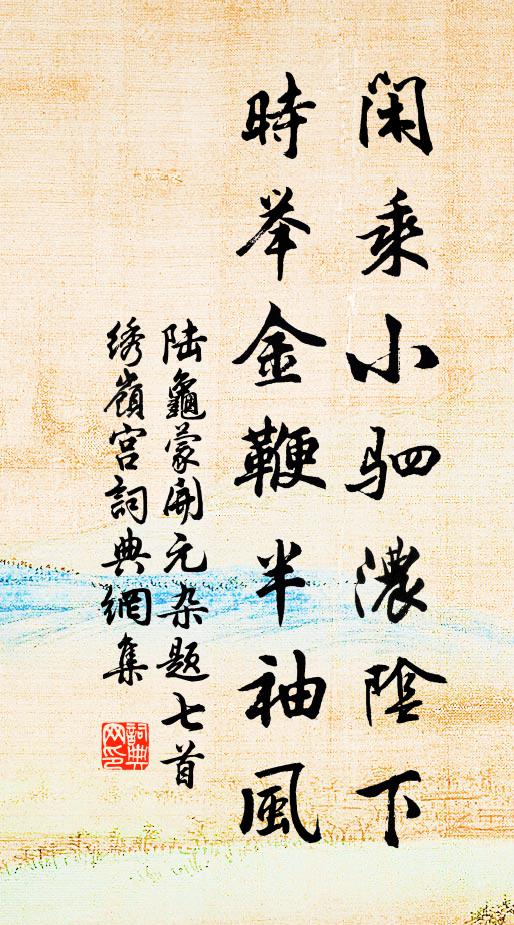 闲乘小驷濃陰下
時举金鞭半袖風
陆龜蒙開元杂题七首
绣嶺宫詞典網集
詞典网印